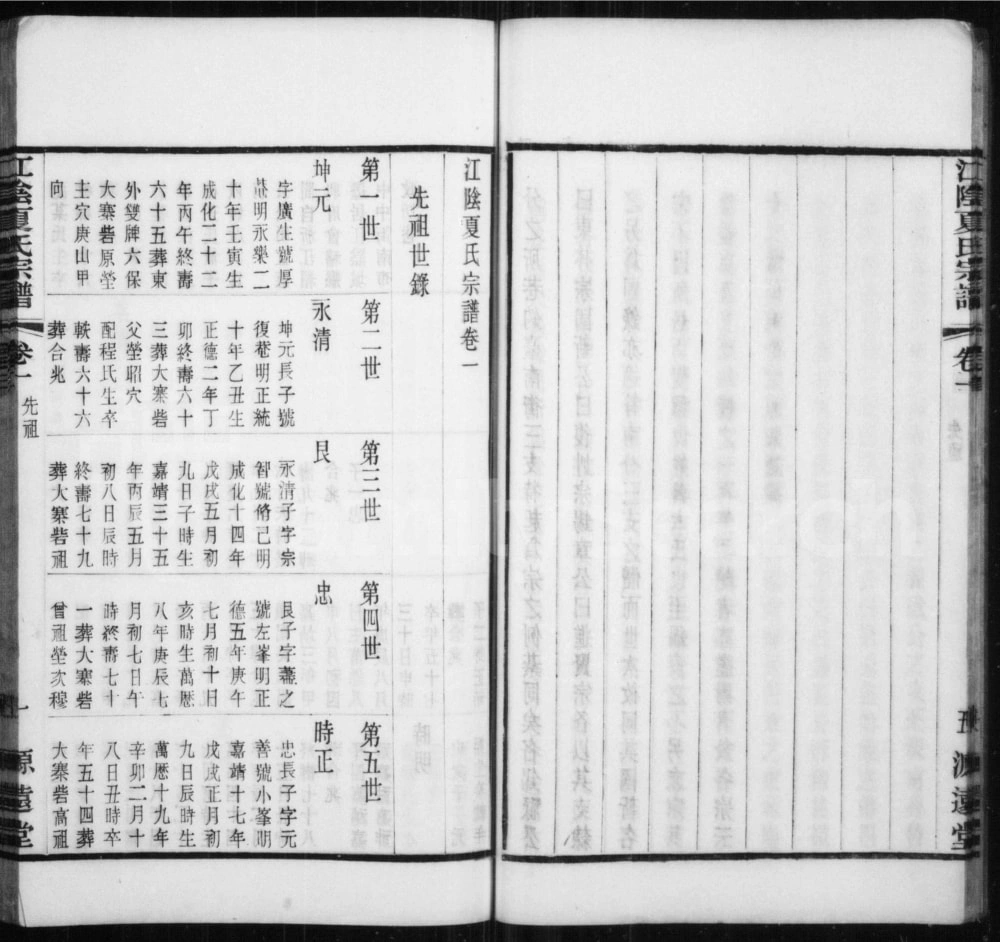 江陰夏氏宗譜
卷一
五
源遠堂
江陰夏氏宗譜卷一
先祖世錄
第一世
坤元
字廣生號厚
菴明永樂二
十年壬寅生
成化二十二
年丙午終壽
六十五葬東
外雙牌六保
大寨砦原塋
主穴庚山甲
向
第二世
永清
坤元長子號
復菴明正統
十年乙丑生
正德二年丁
卯終壽六十
三葬大寨砦
父塋昭穴
配程氏生卒
軼壽六十六
葬合兆
第三世
艮
永清子字宗
智號脩己明
成化十四年
戊戌五月初
九日子時生
嘉靖三十五
年丙辰五月
初八日辰時
終壽七十九
葬大寨砦祖
第四世
忠
艮子字藎之
號左峯明正
德五年庚午
七月初十日
亥時生萬歷
八年庚辰七
月初七日午
時終壽七十
一葬大寨砦
曾祖塋次穆
第五世
時正
忠長子字元
善號小峯明
嘉靖十七年
戊戌正月初
九日辰時生
萬歷十九年
辛卯二月十
八日丑時卒
年五十四葬
大寨砦高祖
江陰夏氏宗譜
卷一
先祖
一
源遠堂